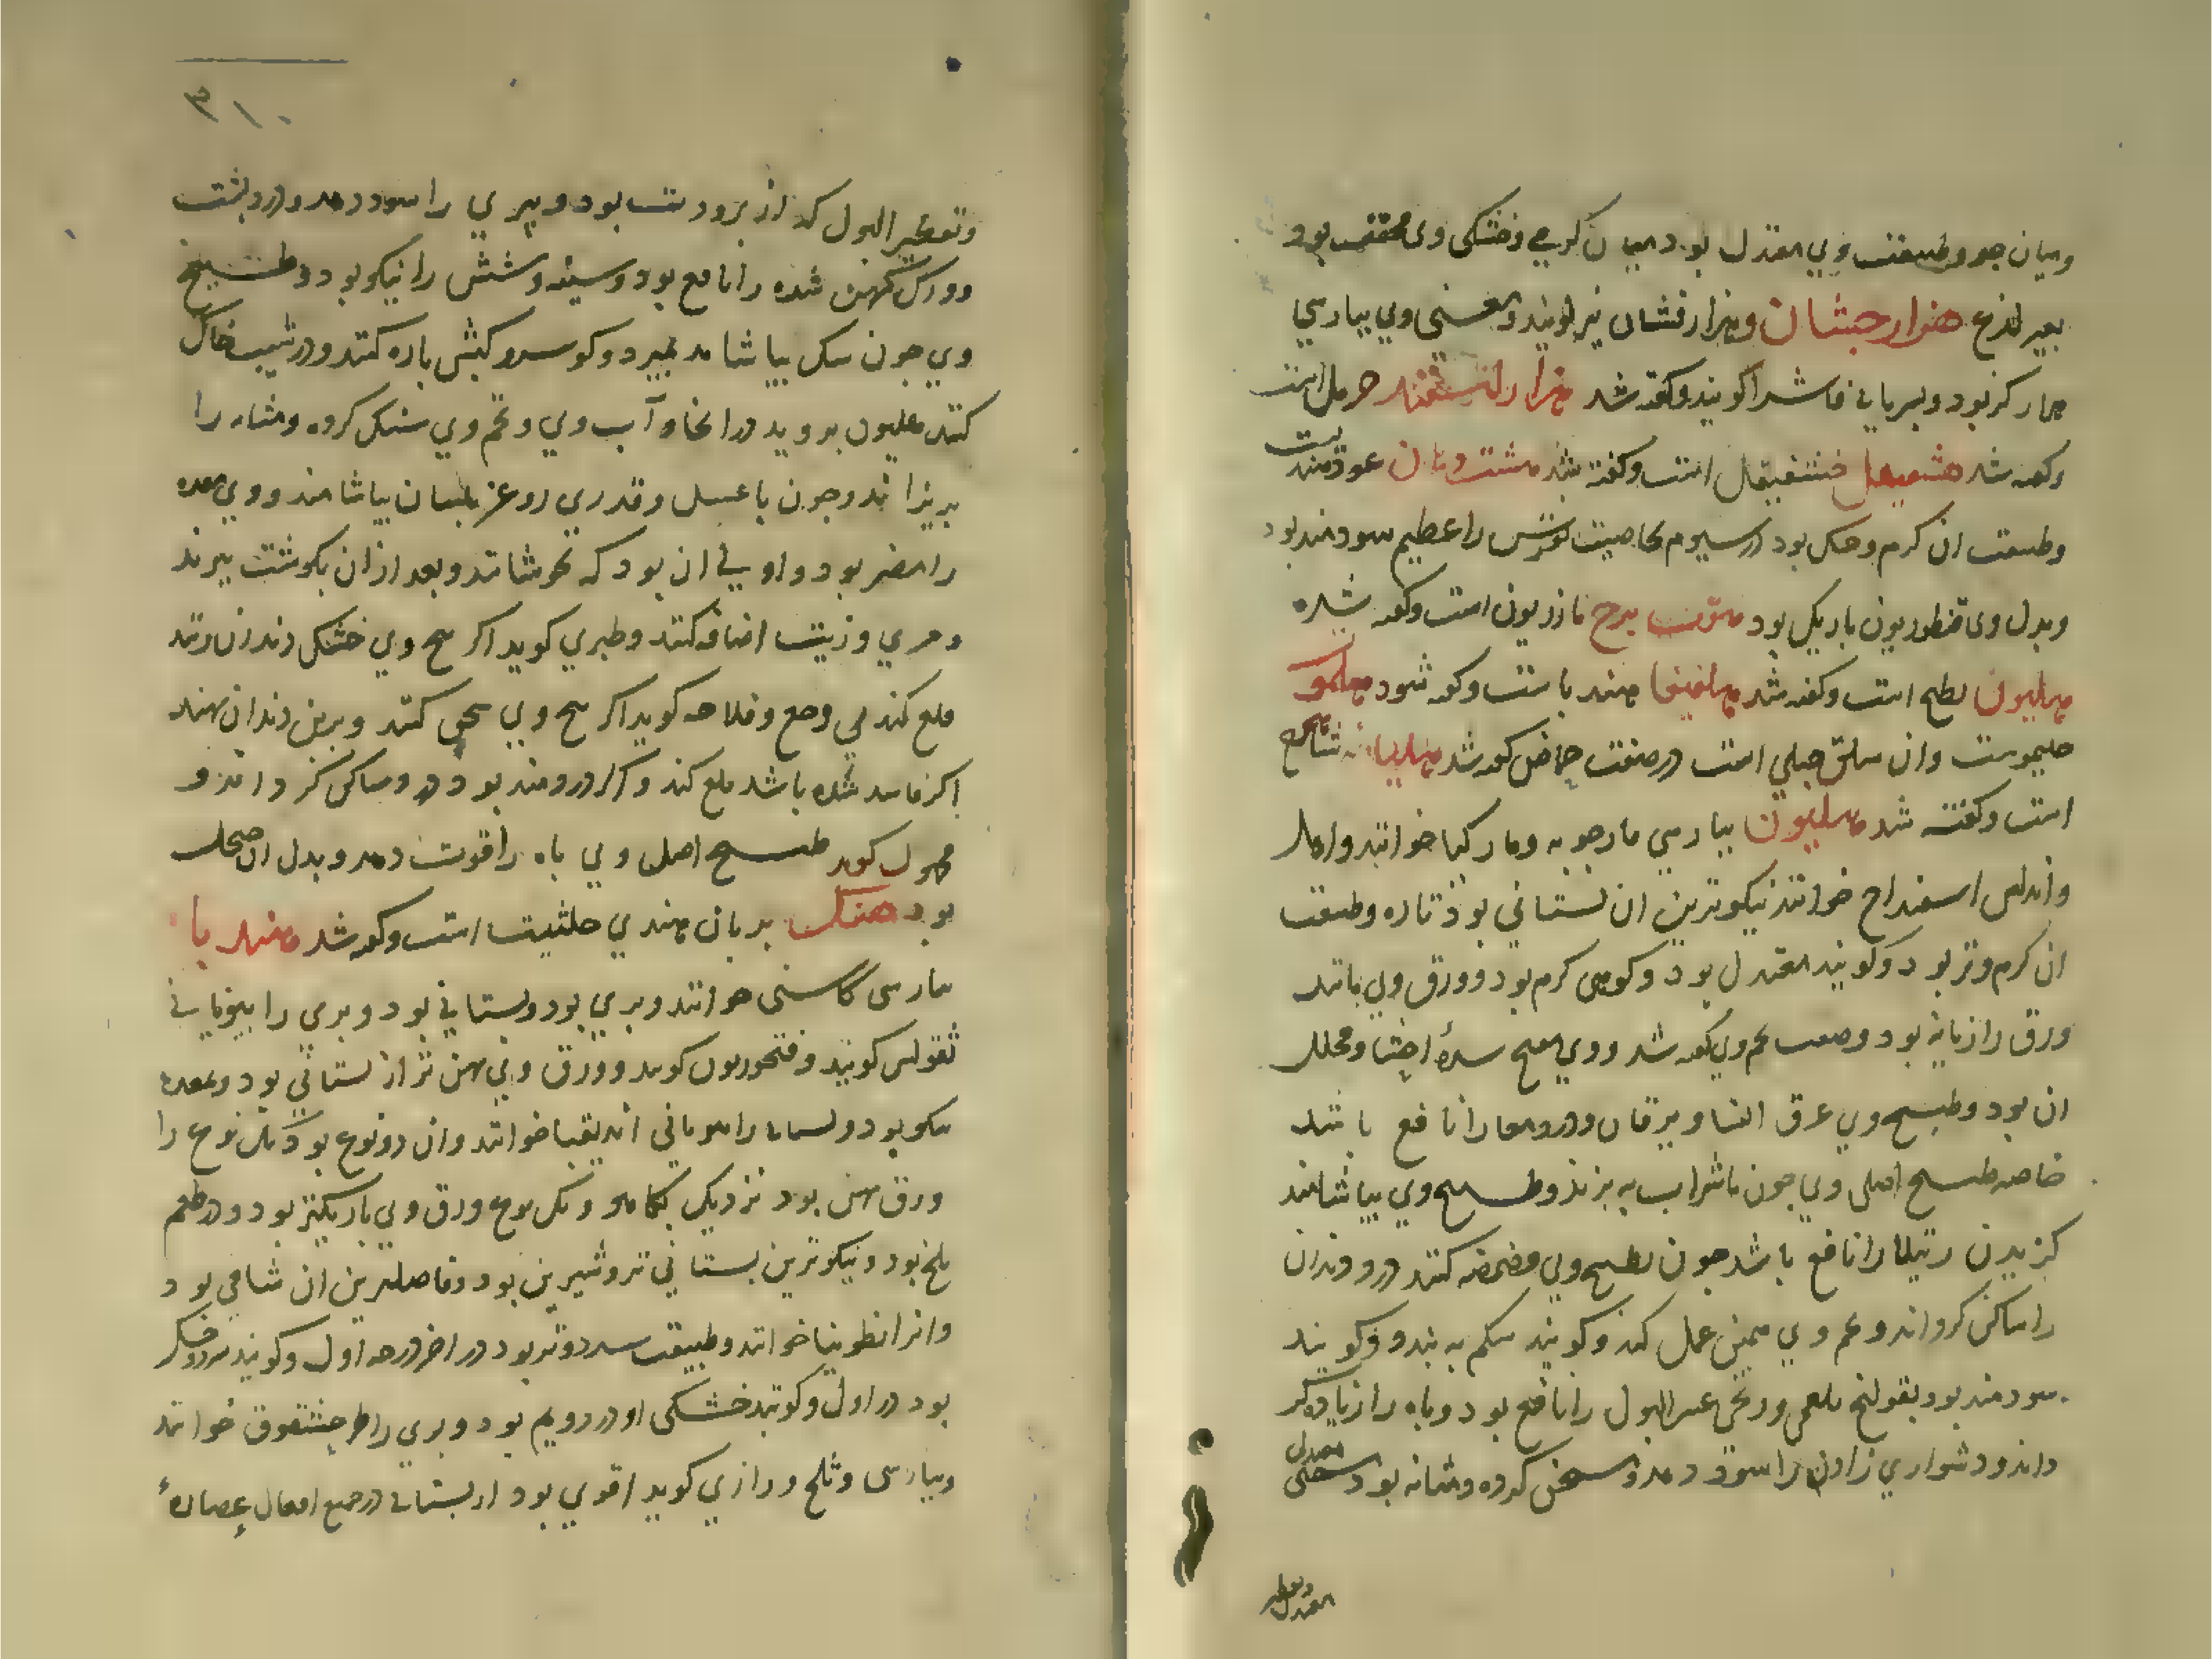 ومیان جو وطبیعت وي معتدل بود میان گرمي وخشکی وی مجفف بود
بغیر لذع هزار جشان وهزار فشان نیز گویند ومعنی وي بپارسي
هزار کز بود وبسریانی فاشرا گویند وگفته شد هزار اسفند حرمل است
وگفته شد هشفیقل خشنفیقال است وگفته شد هشت دهان عود هندیست
وطبیعت ان گرم وخشک بود در سیوم بخاصیت نقرس را عظیم سودمند بود
وبدل وی قنطوریون باریک بود مازریون است وگفته شده
هلیون بطیخ است وگفته شد هند باست وگفته شود
حلیموست وان سلق جبلي است در صفت حماض گفته شد شاهترج
است وگفته شد هلیون بپارسي مارچوبه ومارگیا خوانند واهل
واندلس اسفنداج خوانند نیکوترین ان بستاني بود تازه وطبیعت
ان گرم وتر بود وگویند معتدل بود وگوهی گرم بود وورق وي مانند
ورق رازیانه بود وصفت تخم وي گفته شد ووي مفتح سدهٔ احشا ومحلل
ان بود وطبیخ وي عرق النسا ویرقان ودرد معا را نافع باشد
خاصه طبیخ اصل وي چون باشراب به پزند وطبیخ وي بیاشامند
گزیدن رتیلا را نافع باشد چون بطبیخ وي مضمضه کنند درد دندان
را ساکن گرداند وتخم وي همین عمل کند وگویند شکم به بندد وگویند
سودمند بود بقولنج بلغمی وریحی وعسر البول را نافع بود وباه را زیاده گر
داند ودشواري زادن را سود دهد ومسخن گرده ومثانه بود
وتقطیر البول که از برودت بود وپیري را سود دهد ودرد پشت
وورک کهن شده را نافع بود وسینه وشش را نیکو بود وطبیخ
وي چون سک بیاشامد بمیرد وگو سرو کبش پاره کنند ودر شیب خاک
کنند هلیون بروید در انجا وآب وي وتخم وي سنک گرده ومثانه را
بریزاند وچون با عسل وقدري روغن بلسان بیاشامند ووي معده
را مضر بود واولي ان بود که بجوشانند وبعد ازان بگوشت بپزند
ومري وزیت اضافه کنند وطبري گوید اگر بیخ وي خشک دندان زنند
قلع کند بي وجع وفلاحه گوید اگر بیخ وي سحق کنند وبربن دندان نهند
اگر فاسد شده باشد قلع کند واگر دردمند بود درد ساکن گرداند و
مجهول گوید طبیخ اصل وي باه را قوت دهد وبدل ان
بود هنک بزبان هندي حلتیت است وگفته شد هند با
بپارسی کاسنی خوانند وبري بود وبستاني بود وبري را بیونانی
ثقولس گویند وورق وي پهن تر از بستاني بود وبمعده
نیکو بود وبستانی را بیونانی اندیقیا خوانند وان دو نوع بود یک نوع را
ورق پهن بود نزدیک بکاهو ویک نوع ورق وي باریکتر بود ودر طعم
تلخ بود ونیکوترین بستاني تر وشیرین بود وفاضلترین ان شامي بود
وانرا انطوبیا خوانند وطبیعت سرد وتر بود در اخر درجه اول وگویند سرد وخشک
بود در اول وگویند خشکی او در دویم بود وبري را طرخشقوق خوانند
وبپارسی وتلخ ورازي گوید اقوي بود از بستانی در جمیع افعال عصارهٔ